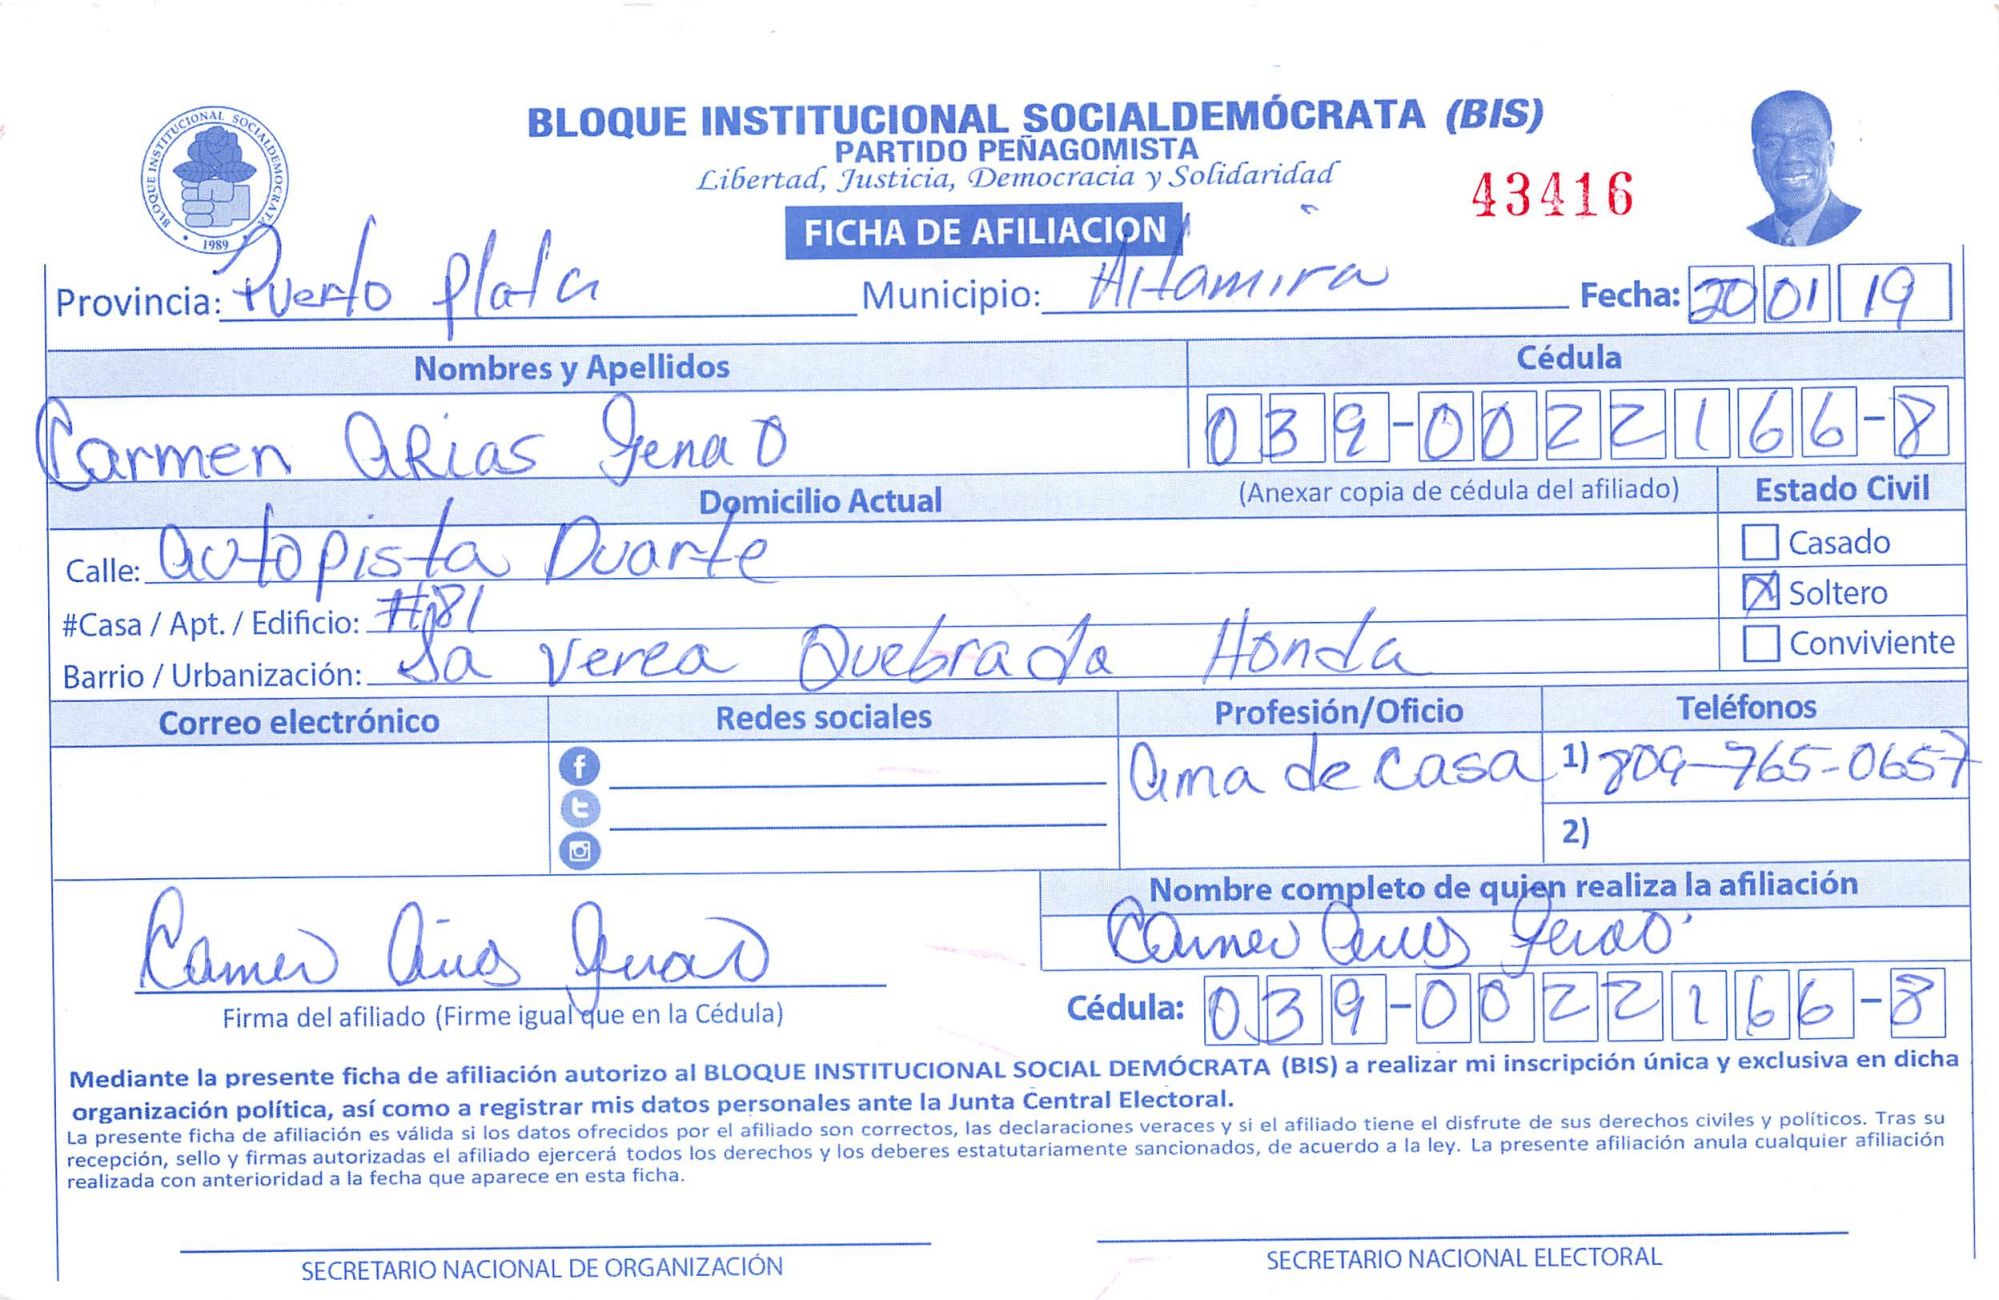 BLOQUE INSTITUCIONAL SOCIALDEMÓCRATA (BIS)
BLOQUE INSTITUCIONAL SOCIALDEMOCRATA
1989
PARTIDO PEÑAGOMISTA
Libertad, Justicia, Democracia y Solidaridad
43416
FICHA DE AFILIACION
Provincia: Puerto Plata Municipio: Altamira Fecha: 20 01 19
Nombres y Apellidos Cédula
Carmen Arias Genao 039-0022166-8
Domicilio Actual (Anexar copia de cédula del afiliado) Estado Civil
Calle: Autopista Duarte Casado
#Casa / Apt. / Edificio: #181 Soltero
Barrio / Urbanización: La Verea Quebrada Honda Conviviente
Correo electrónico Redes sociales Profesión/Oficio Teléfonos
Ama de casa 1) 809-765-0657
2)
Nombre completo de quien realiza la afiliación
Carmen Arias Genao Carmen Arias Genao
Firma del afiliado (Firme igual que en la Cédula) Cédula: 039-0022166-8
Mediante la presente ficha de afiliación autorizo al BLOQUE INSTITUCIONAL SOCIAL DEMÓCRATA (BIS) a realizar mi inscripción única y exclusiva en dicha
organización política, así como a registrar mis datos personales ante la Junta Central Electoral.
La presente ficha de afiliación es válida si los datos ofrecidos por el afiliado son correctos, las declaraciones veraces y si el afiliado tiene el disfrute de sus derechos civiles y políticos. Tras su
recepción, sello y firmas autorizadas el afiliado ejercerá todos los derechos y los deberes estatutariamente sancionados, de acuerdo a la ley. La presente afiliación anula cualquier afiliación
realizada con anterioridad a la fecha que aparece en esta ficha.
SECRETARIO NACIONAL DE ORGANIZACIÓN SECRETARIO NACIONAL ELECTORAL